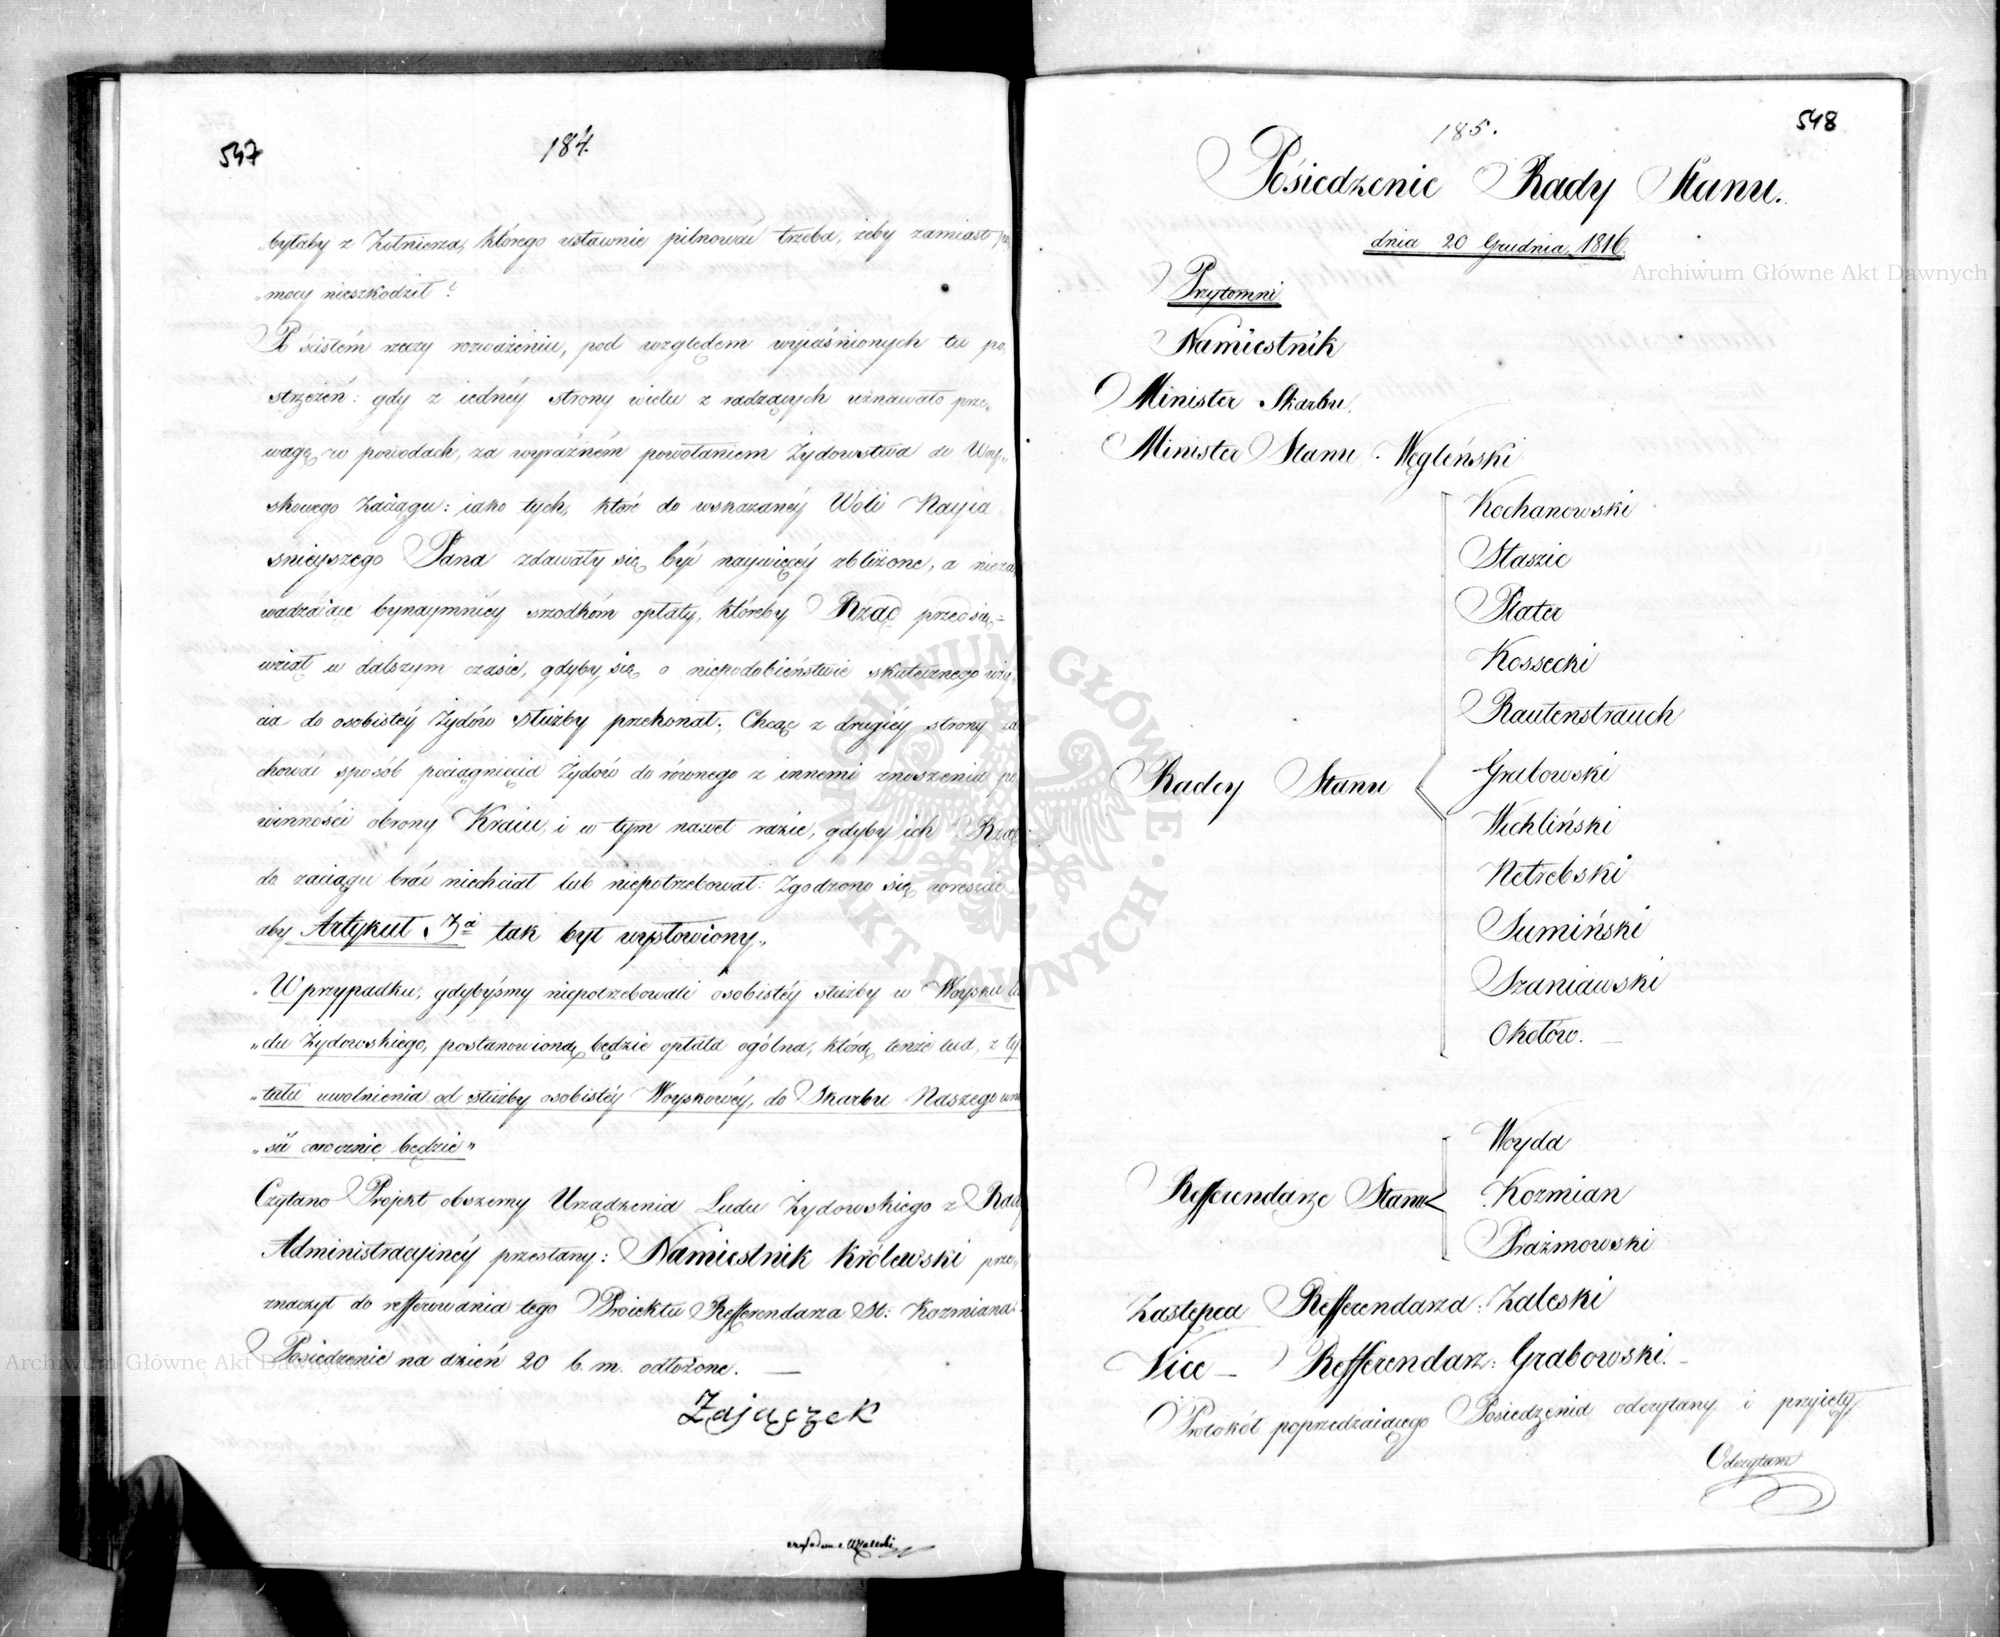 547
184.
„byłaby z Żołnierza, którego ustawnie pilnować trzeba, żeby zamiast po„
„mocy nieszkodził?
Po ścisłém rzeczy rozważeniu, pod względem wyiaśnionych tu po„
strzeżeń: gdy z iednéy strony wielu z radzących uznawało prze„
wagę w powodach, za wyraźném powołaniem Żydowstwa do Woy„
skowego Zaciągu: iako tych, któré do wskazanéy Woli Nayia„
śnieyszego Pana zdawały się być naywięcéy zbliżone, a nieza„
wadzaiące bynaymniéy srzodkóm opłaty, któreby Rząd przedsię=
wziął w dalszym czasie, gdyby się o niepodobieństwie skutecznego uży„
cia do osobistéy Żydów służby przekonał; Chcąc z drugiéy strony za
chować sposób pociągnięcia Żydów do równego z innemi znoszenia po
winności obrony Kraiu, i w tym nawet razie, gdyby ich Rząd
do zaciągu brać niechciał lub niepotrzebował: Zgodzono się wreszcie
aby Artykuł 3ci tak był wysłowiony„
„W przypadku, gdybyśmy niepotrzebowali osobistéy służby w Woysku lu
„du Żydowskiego, postanowioną będzie opłata ogólna, którą tenże lud, z ty
„tułu uwolnienia od służby osobistéy Woyskowéy, do Skarbu Naszego wno
„sić corocznie będzie„
Czytano Projekt obszerny Urządzenia Ludu Żydowskiego z Rady
Administracyinéy przesłany: Namiestnik Królewski prze„
znaczył do refferowania tego Proiektu Refferendarza St: Kozmiana.
Posiedzenie na dzień 20 b. m. odłożone. —
Zajączek
548
185.
Posiedzenie Rady Stanu.
dnia 20 Grudnia 1816
Przytomni
Namiestnik
Minister Skarbu.
Minister Stanu. Węgleński
Kochanowski
Staszic
Plater
Kossecki
Rautenstrauch
Radcy Stanu
Grabowski
Wichliński
Netrebski
Sumiński
Szaniawski
Okołów.
Woyda
Refferendarze Stanu
Kozmian
Prażmowski
Zastępca Refferendarza: Zaleski
Vice — Refferendarz: Grabowski. —
Protokół poprzedzaiącego Posiedzenia odczytany i przyięty
Odczytano
Archiwum Główne Akt Dawnych
Archiwum Główne Akt Dawnych
ARCHIWUM GŁÓWNE AKT DAWNYCH